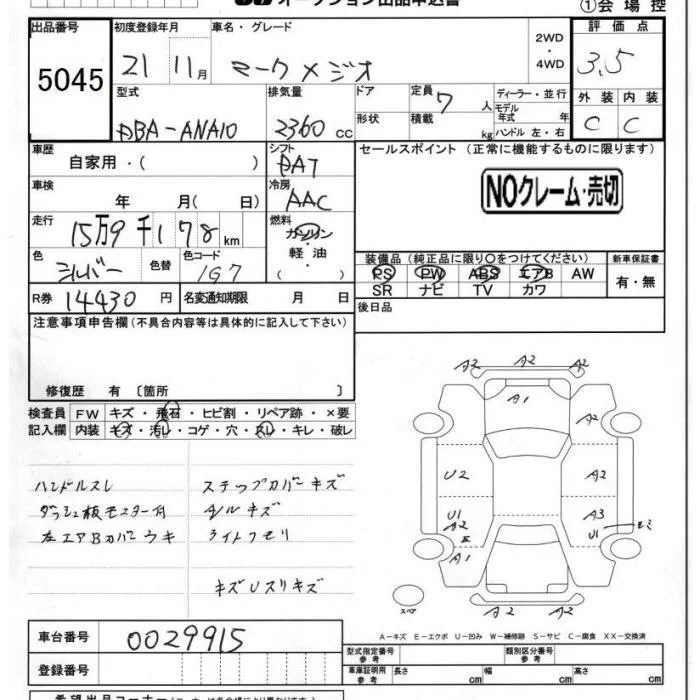 オークション出品申込書
①会場控
出品番号 初度登録年月 車名・グレード 評価点
5045 21 11月 マークXジオ 2WD・4WD 3.5
型式 排気量 ドア 定員 ディーラー・並行 外装 内装
DBA-ANA10 2360 CC 7人 モデル年式 年 C C
形状 積載 kg ハンドル 左・右
車歴 自家用・( ) シフト セールスポイント (正常に機能するものに限ります)
DAT
車検 年 月( 日) 冷房 AAC NOクレーム・売切
走行 15万9千178km 燃料 ガソリン・軽油・( )
装備品(純正品に限り○をつけてください) 新車保証書
色 シルバー 色替 色コード 1G7
PS PW ABS エアB AW 有・無
SR ナビ TV カワ
R券 14430円 名変通知期限 月 日 後日品
注意事項申告欄(不具合内容等は具体的に記入して下さい)
修復歴 有〔箇所 〕
検査員記入欄 FW キズ・飛石・ヒビ割・リペア跡・×要
内装 キズ・汚レ・コゲ・穴・スレ・キレ・破レ
ハンドルスレ ステップカバーキズ
ダッシュ板モニター付 A/Wキズ
左エアBカバーウキ ライトクモリ
キズUスリキズ
A2 A2 A2
A1
A2
U2 A2
U1 A3
A2 U1
A1
スペア
A2 A2
A-キズ E-エクボ U-凹み W-補修跡 S-サビ C-腐食 XX-交換済
車台番号 0029915
型式指定番号 参考 類別区分番号 参考
登録番号 車庫証明用 参考 長さ cm 幅 cm 高さ cm